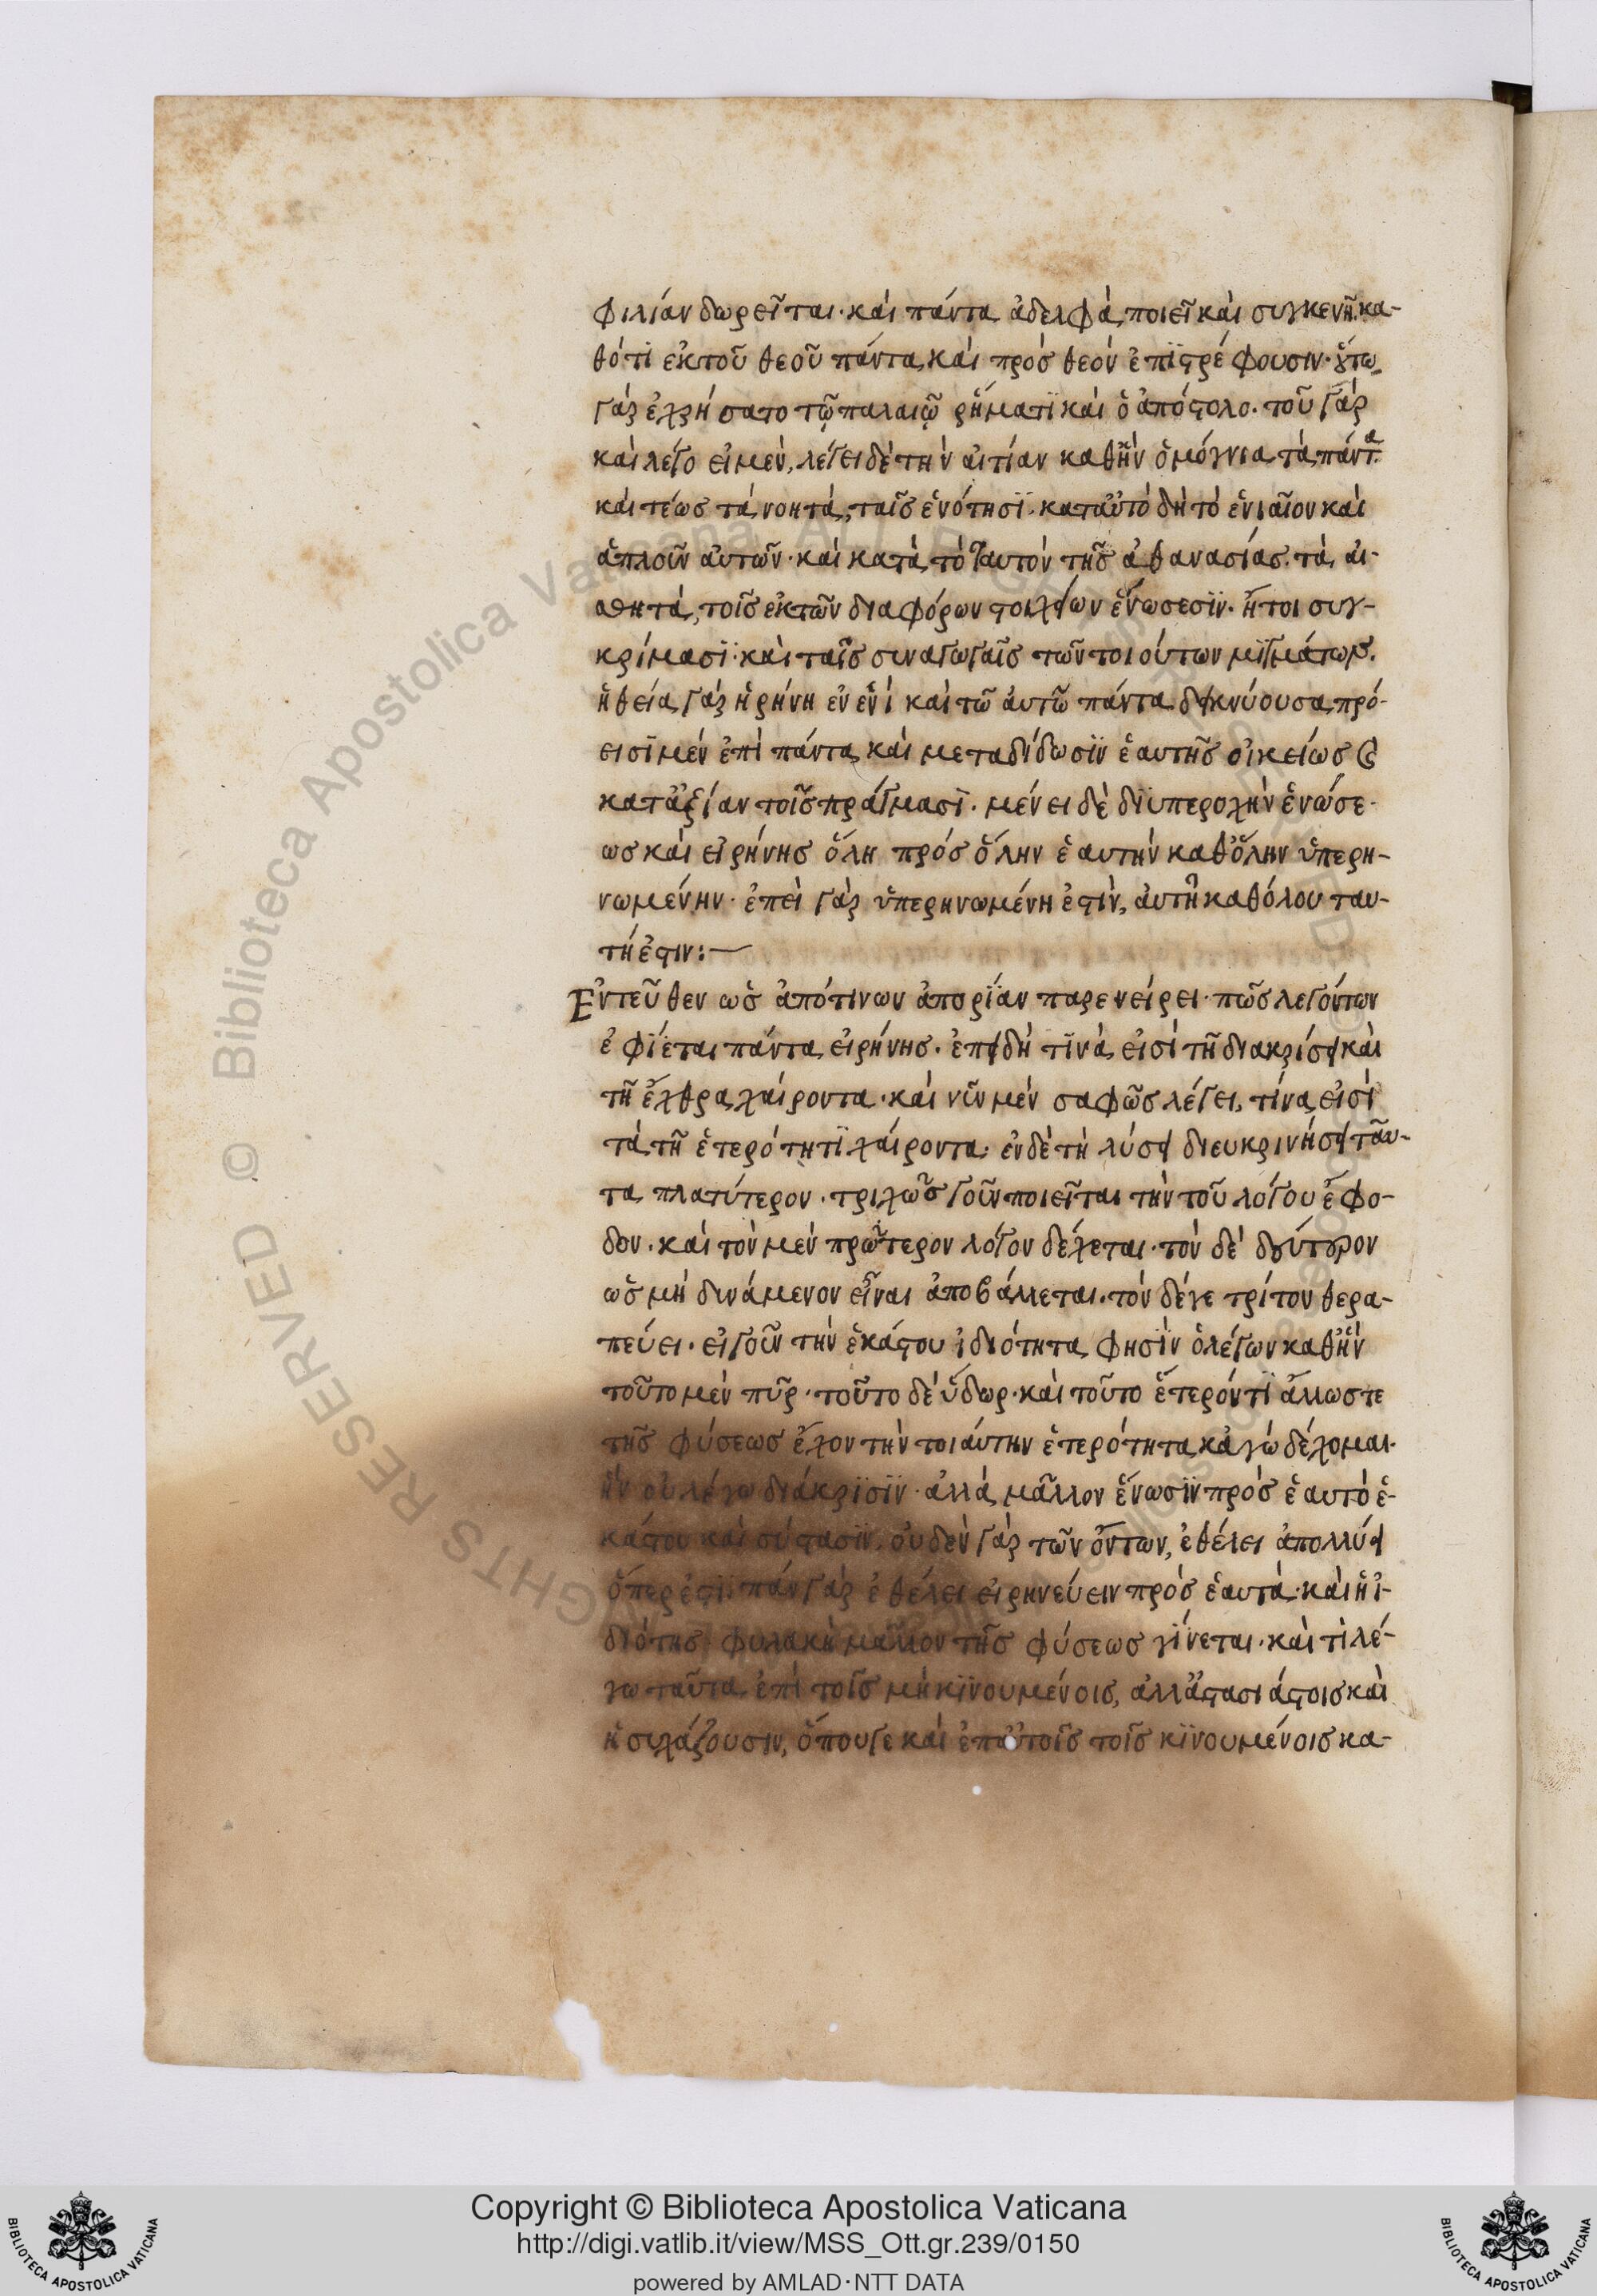 φιλίαν δωρεῖται· καὶ πάντα ἀδελφὰ ποιεῖ καὶ συγκενῆ. κα-
θότι ἐκ τοῦ θεοῦ πάντα, καὶ πρὸς θεὸν ἐπιστρέφουσιν· οὕτω
γὰρ ἐχρήσατο τῷ παλαιῷ ῥήματι καὶ ὁ ἀπόστολο. τοῦ γὰρ
καὶ λέγο εἰμὲν, λέγει δὲ τὴν αἰτίαν καθ ἣν ὁμόγνια τὰ πάντα
καὶ τέως τὰ νοητὰ, ταῖς ἑνότησι. κατ αὐτὸ δὴ τὸ ἑνιαῖον καὶ
ἁπλοῦν αὐτῶν· καὶ κατὰ τὸ ταυτὸν τῆς ἀθανασίας. τὰ αἰ-
σθητὰ, τοῖς ἐκ τῶν διαφόρων στοιχείων ἑνώσεσιν. ἤτοι συγ-
κρίμασι· καὶ ταῖς συναγωγαῖς τῶν τοιούτων μιγμάτων.
ἡ θεία γὰρ ἠρήνη ἐν ἑνὶ καὶ τῶ αὐτῶ πάντα δεικνύουσα, πρό-
εισι μὲν ἐπὶ πάντα, καὶ μεταδίδωσιν ἑαυτῆς οἰκείως καὶ
κατ ἀξίαν τοῖς πράγμασι. μένει δὲ δι ὑπεροχὴν ἑνώσε-
ως καὶ εἰρήνης ὅλη πρὸς ὅλην ἑαυτὴν καθ ὅλην ὑπερη-
νωμένην· ἐπεὶ γὰρ ὑπερηνωμένη ἐστὶν, αὐτὴ καθόλου ταυ-
τή ἐστιν:—
Ἐντεῦθεν ὡς ἀπό τινων ἀπορίαν παρενείρει· πῶς λεγόντων
ἐφίεται πάντα εἰρήνης. ἐπειδὴ τινὰ εἰσὶ τῆ διακρίσει καὶ
τῆ ἔχθρα χαίροντα. καὶ νῦν μὲν σαφῶς λέγει, τίνα εἰσὶ
τὰ τῆ ἑτερότητι χαίροντα· ἐν δὲ τῆ λύσει διευκρινήσει ταῦ-
τα πλατύτερον. τριχῶς γοῦν ποιεῖται τὴν τοῦ λόγου ἔφο-
δον. καὶ τὸν μὲν πρώτερον λόγον δέχεται· τὸν δὲ δεύτερον
ὡς μὴ δυνάμενον εἶναι ἀποβάλλεται. τὸν δέ γε τρίτον θερα-
πεύει. εἰ γοῦν τὴν ἑκάστου ἰδιότητα φησὶν ὁ λέγων καθ ἣν
τοῦτο μὲν πῦρ· τοῦτο δὲ ὕδωρ· καὶ τοῦτο ἕτερόν τι ἄλλως τε
τῆς φύσεως ἔχον τὴν τοιαύτην ἑτερότητα, κἀγὼ δέχομαι.
ἣν οὐ λέγω διάκρισιν· ἀλλὰ μᾶλλον ἕνωσιν πρὸς ἑαυτὸ ἑ-
κάστου καὶ σύστασιν. οὐδὲν γὰρ τῶν ὄντων, ἐθέλει ἀπολλύει
ὅπερ ἐστὶ· πᾶν γὰρ ἐθέλει εἰρηνεύειν πρὸς ἑαυτὰ· καὶ ἡ ἰ-
διότης φυλακὴ μᾶλλον τῆς φύσεως γίνεται. καὶ τὶ λέ-
γω ταῦτα ἐπὶ τοῖς μὴ κινουμένοις, ἀλλ ἀστασιάστοις καὶ
ἡσυχάζουσιν, ὅπου γε καὶ ἐπ αὐτοῖς τοῖς κινουμένοις κα-
Copyright © Biblioteca Apostolica Vaticana
http://digi.vatlib.it/view/MSS_Ott.gr.239/0150
powered by AMLAD·NTT DATA